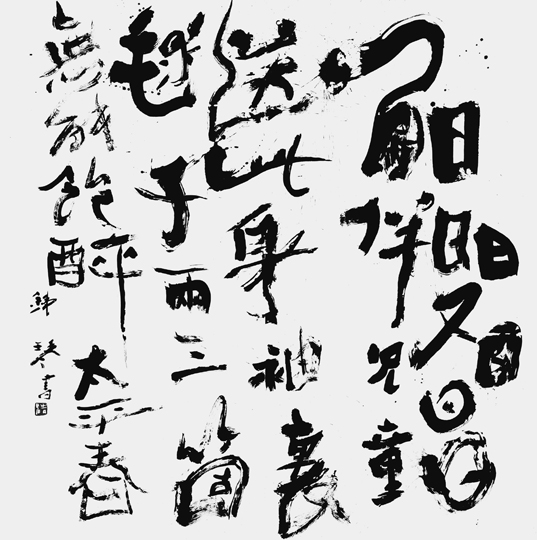 日日日又日日日
間伴兒童
送此身袖裏
毬子兩三箇
無能飽醉太平春
書